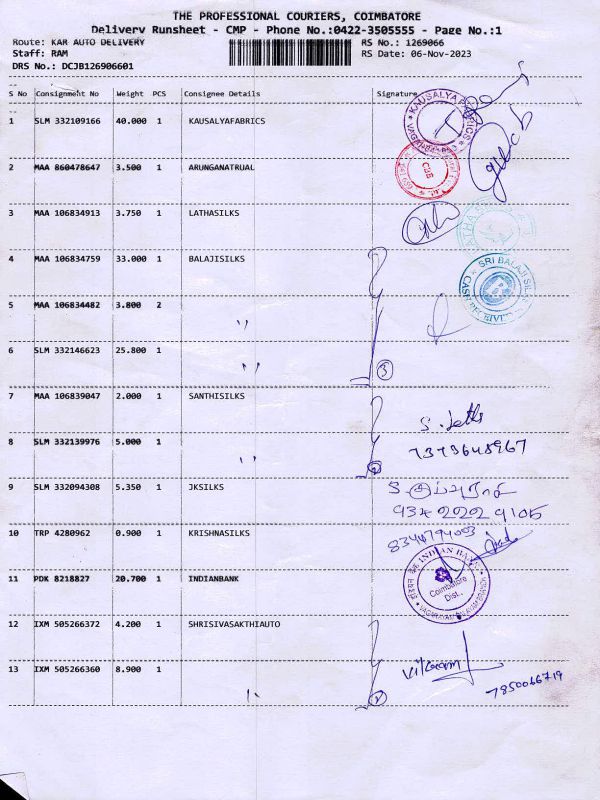 THE PROFESSIONAL COURIERS, COIMBATORE
Delivery Runsheet - CMP - Phone No.:0422-3505555 - Page No.:1
Route: KAR AUTO DELIVERY RS No.: 1269066
Staff: RAM RS Date: 06-Nov-2023
DRS No.: DCJB126906601
S No Consignment No Weight PCS Consignee Details Signature
1 SLM 332109166 40.000 1 KAUSALYAFABRICS
KAUSALYA FABRICS
2 MAA 860478647 3.500 1 ARUNGANATRUAL
CBE
3 MAA 106834913 3.750 1 LATHASILKS
4 MAA 106834759 33.000 1 BALAJISILKS
SRI BALAJI SILKS
CASH RECEIVED
5 MAA 106834482 3.800 2 "
6 SLM 332146623 25.800 1 "
3
7 MAA 106839047 2.000 1 SANTHISILKS
8 SLM 332139976 5.000 1 "
7373648967
9 SLM 332094308 5.350 1 JKSILKS
10 TRP 4280962 0.900 1 KRISHNASILKS
11 PDK 8218827 20.700 1 INDIANBANK
INDIAN BANK
Coimbatore
Dist.,
12 IXM 505266372 4.200 1 SHRISIVASAKTHIAUTO
13 IXM 505266360 8.900 1 "
7850066719